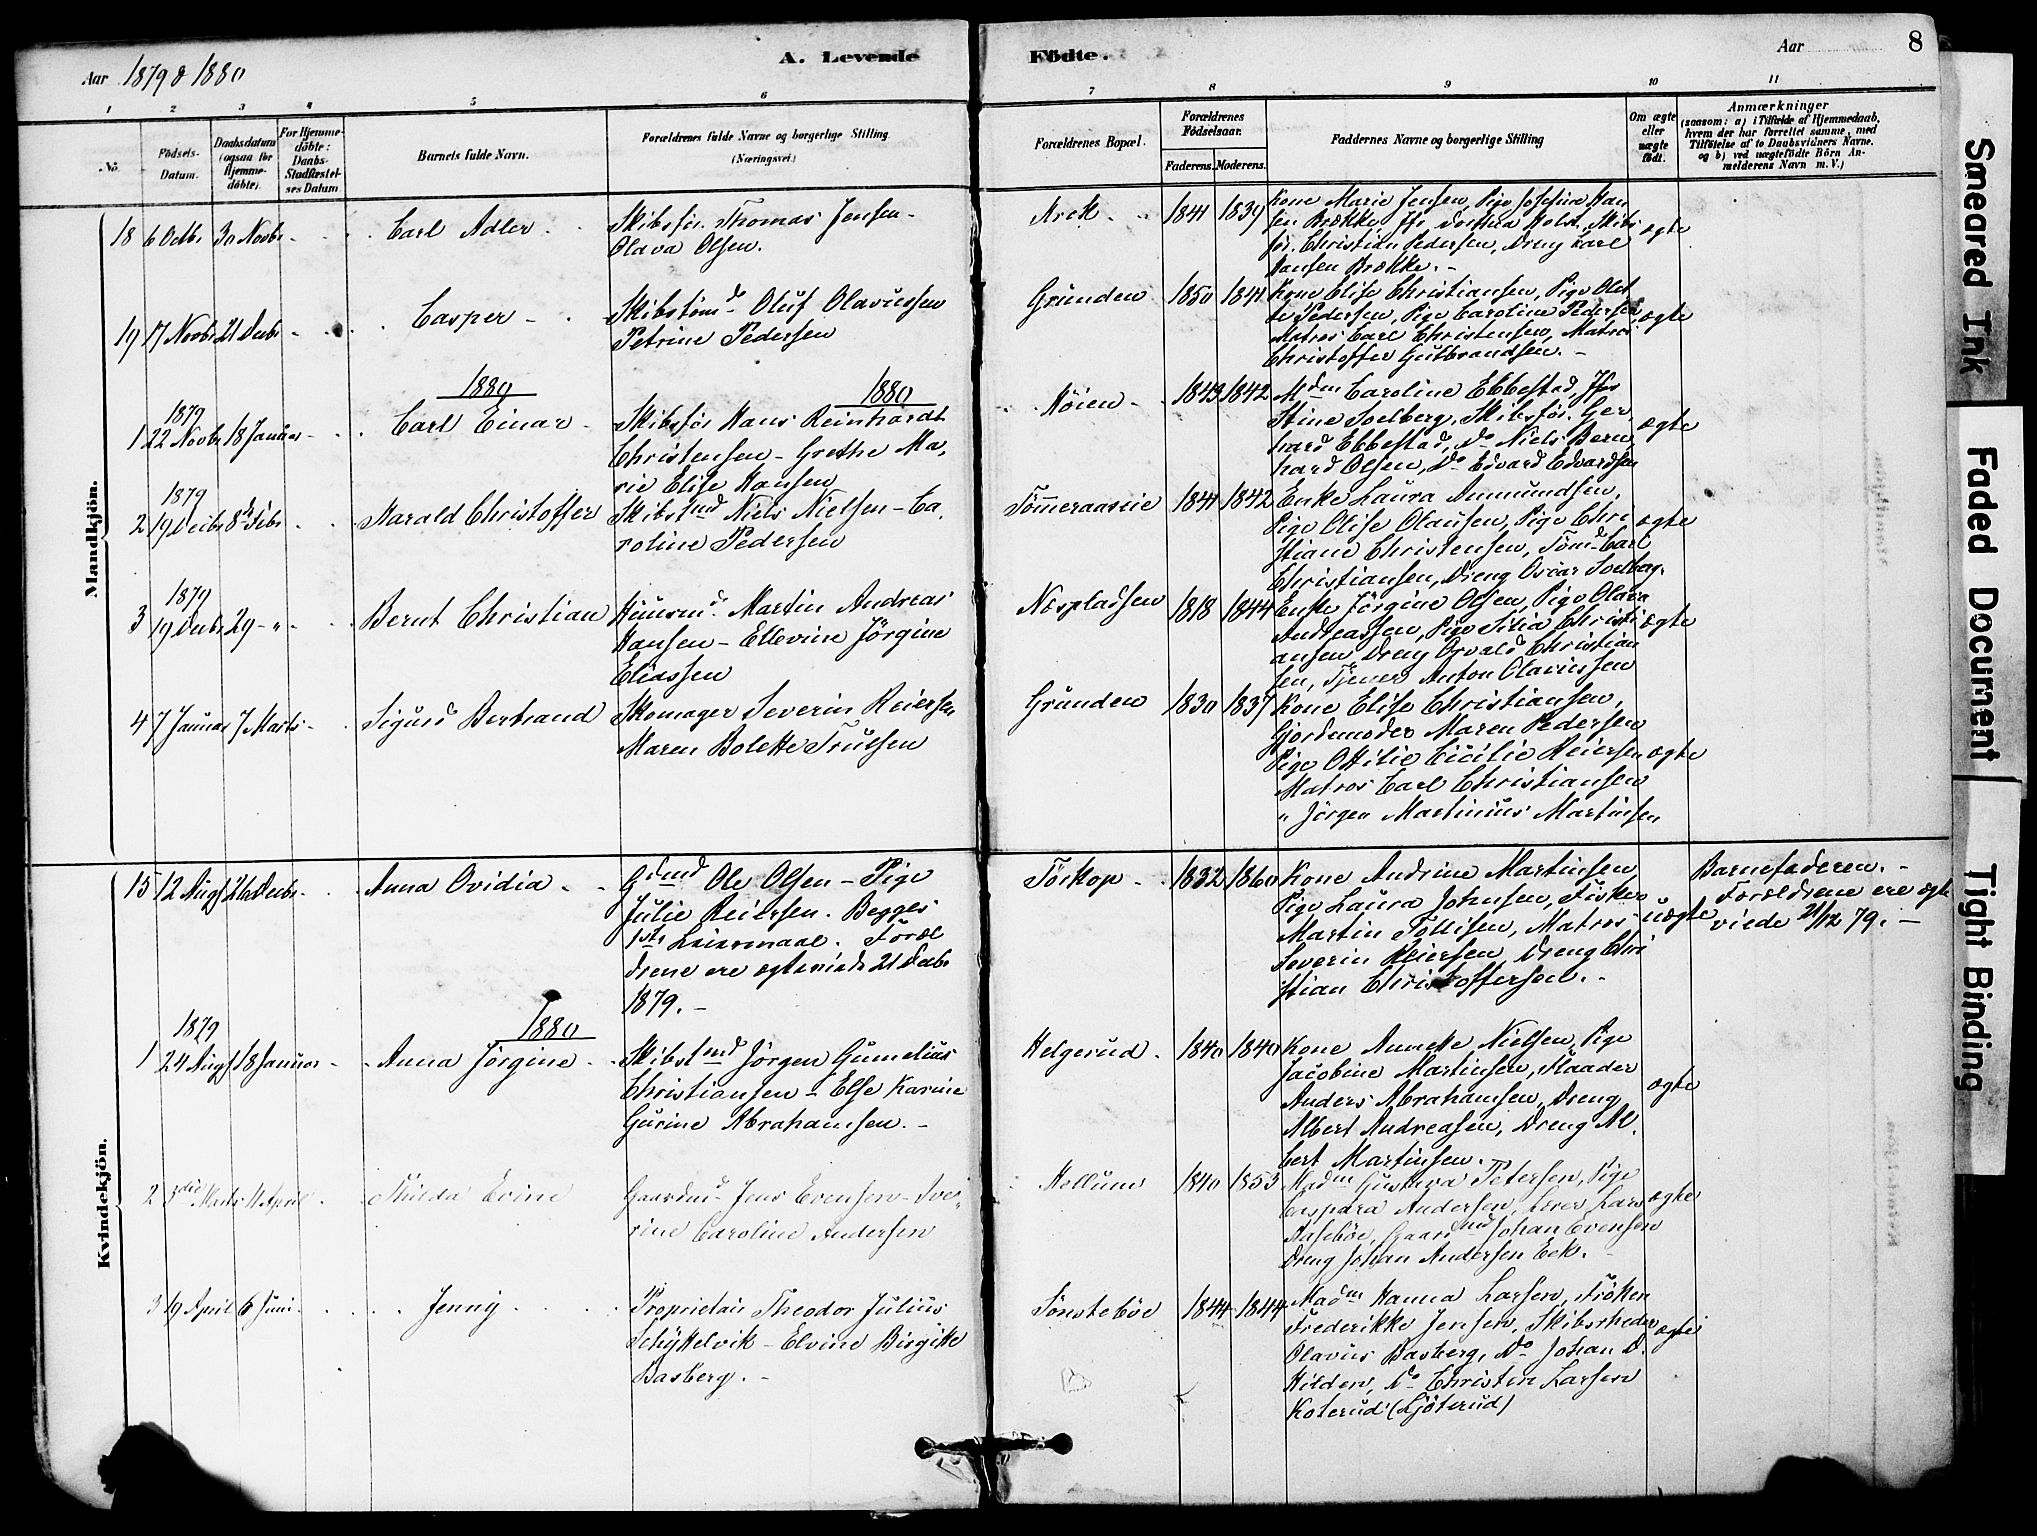 Aar 1879 & 1880
A. Levende
Födte.
Aar
8
1
2
3
4
5
6
7
8
9
10
11
No.
Födsels-
Datum.
Daabsdatum
(ogsaa for
Hjemme-
döbte).
For Hjemme-
döbte:
Daabs-
Stadfæstel-
ses Datum
Barnets fulde Navn.
Forældrenes fulde Navne og borgerlige Stilling
(Næringsvei.)
Forældrenes Bopæl.
Forældrenes
Födselsaar.
Faderens.
Moderens.
Faddernes Navne og borgerlige Stilling
Om ægte
eller
uægte
födt.
Anmærkninger
(saasom: a) i Tilfælde af Hjemmedaab,
hvem der har forrettet samme, med
Tilföielse af to Daabsvidners Navne.
og b) ved uægtefödte Börn An-
melderens Navn m. V.)
Mandkjön.
18 6 Octbr 30 Novbr - Carl Adler
Skibsför. Thomas Jensen -
Olava Olsen.
Arek 1841 1839
Kone Marie Jensen, Pige Josefine Han
sen Brække, Jfr. Dorthea Holst, Skibs
för. Christian Pedersen, Dreng Carl
Hansen Brække. -
ægte
19 17 Novbr 21 Decbr - Casper -
Skibstømd Oluf Olavussen
Petrine Pedersen
Grunden 1850 1841
Kone Elise Christiansen, Pige Olet
te Pedersen, Pige Caroline Pedersen
Matros Carl Christensen, Matros
Christoffer Gutbrandsen. -
ægte
1880
1880
1879
1 22 Novbr 18 Januar - Carl Einar -
Skibsför Hans Reinhardt
Christensen - Grethe Ma,
rie Elise Hansen
Möien - 1843 1842
Mdm Caroline Ebbestad, Jfr
Stine Soelberg, Skibsför. Ger
hard Ebbestad, Do Niels Bern
hard Olsen, Do Edvard Edvardsen
ægte
1879
2 19 Decbr 8 Febr - Harald Christoffer
Skibstmd Niels Nielsen - Ca
roline Pedersen
Tömmeraaseie 1841 1842
Enke Laura Anmundsen,
Pige Elise Olausen, Pige Chri
stiane Christensen, Tömd Carl
Christiansen, Dreng Oscar Soelberg.
ægte
1879
3 19 Decbr 29 - " - Bernt Christian
Huusmd Martin Andreas
Hansen - Ellevine Jörgine
Eliassen
Nøspladsen 1818 1844
Enke Jörgine Olsen, Pige Olava
Andreassen, Pige Silia Christi
ansen, Dreng Osvald Christian
sen, Tjener Anton Olavussen
ægte
4 7 Januar 7 Marts - Sigurd Bertrand
Skomager Severin Reiersen
Maren Bolette Truelsen
Grunden 1830 1837
Kone Elise Christiansen,
Gjordemoder Maren Pedersen
Pige Ottilie Cicilie Reiersen
Matros Carl Christiansen
" Jörgen Martinius Martinsen
ægte
Kvindekjön.
15 12 Augst 26 Decbr - Anna Ovidia -
Gdmd Ole Olsen - Pige
Julie Reiersen. Begges
1ste Leiermaal. Foræl
drene ere ægteviede 21 Decbr
1879. -
Torkop - 1832 1860
Kone Andrine Martinsen,
Pige Laura Johnsen, Fisker
Martin Tollisen, Matros
Severin Reiersen, Dreng Chri
stian Christoffersen. -
uægte
Barnefaderen. -
Forældrene ere ægte
viede 21/12 79. -
1880
1879
1 24 Augst 18 Januar - Anna Jörgine -
Skibstmd Jörgen Gumelius
Christiansen - Else Karine
Gurine Abrahamsen. -
Helgerud. 1840 1840
Kone Annette Nielsen, Pige
Jacobine Martinsen, Maader
Anders Abrahamsen, Dreng
Albert Andreasen, Dreng Al,
bert Martinsen.
ægte
2 3die Marts 11 April - Thilda Evine
Gaardmd Jens Evensen - Seve,
rine Caroline Andersen
Hellum 1840 1853
Madm Gustava Petersen, Pige
Caspara Andersen, Lærer Lars
Aaseböe, Gaardmd Johan Evensen
Dreng Johan Andersen Eek. -
ægte
3 19 April 6 Juni - Jenny -
Proprietair Theodor Julius
Schytkelvik - Elvine Birgitte
Basberg. -
Tönsteböe 1844 1844
Madm Hanna Larsen, Fröken
Frederikke Jensen, Skibsrheder
Olavus Basberg, Do Johan D.
Hilden, Do Christen Larsen
Koterud (Ljöterud)
ægte
Smeared Ink
Faded Document
Tight Binding